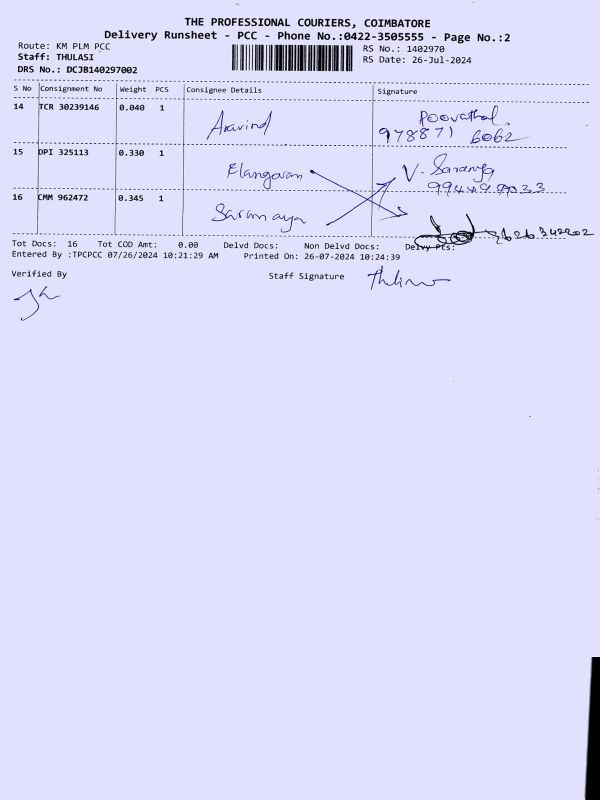 THE PROFESSIONAL COURIERS, COIMBATORE
Delivery Runsheet - PCC - Phone No.:0422-3505555 - Page No.:2
Route: KM PLM PCC
RS No.: 1402970
Staff: THULASI
RS Date: 26-Jul-2024
DRS No.: DCJB140297002
S No Consignment No Weight PCS Consignee Details Signature
14 TCR 30239146 0.040 1 Aravind Poovathal.
978871 6062
15 DPI 325113 0.330 1 Elangovan V. Saranya
16 CMM 962472 0.345 1 Saranaya
Tot Docs: 16 Tot COD Amt: 0.00 Delvd Docs: Non Delvd Docs: Delvy Pts:
Entered By :TPCPCC 07/26/2024 10:21:29 AM Printed On: 26-07-2024 10:24:39
Verified By Staff Signature